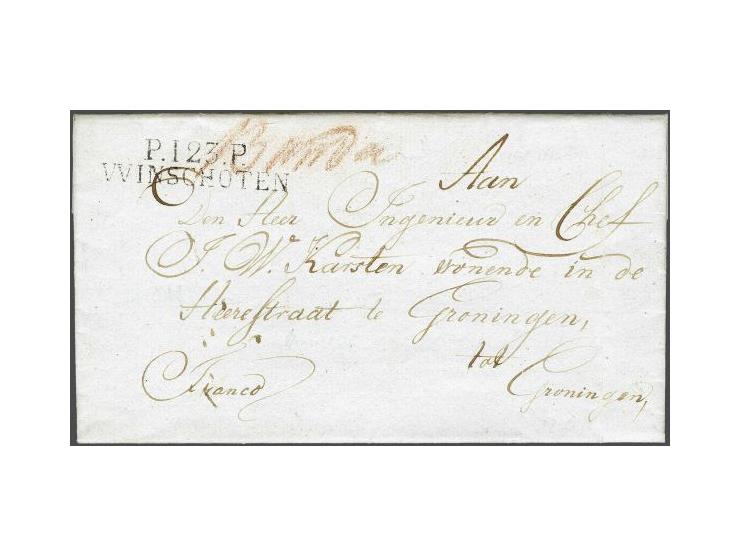 P.123.P.
WINSCHOTEN
Aan
Den Heer Ingenieur en Chef
J. We Karsten wonende in de
Heerestraat te Groningen,
tot
Franco
Groningen,